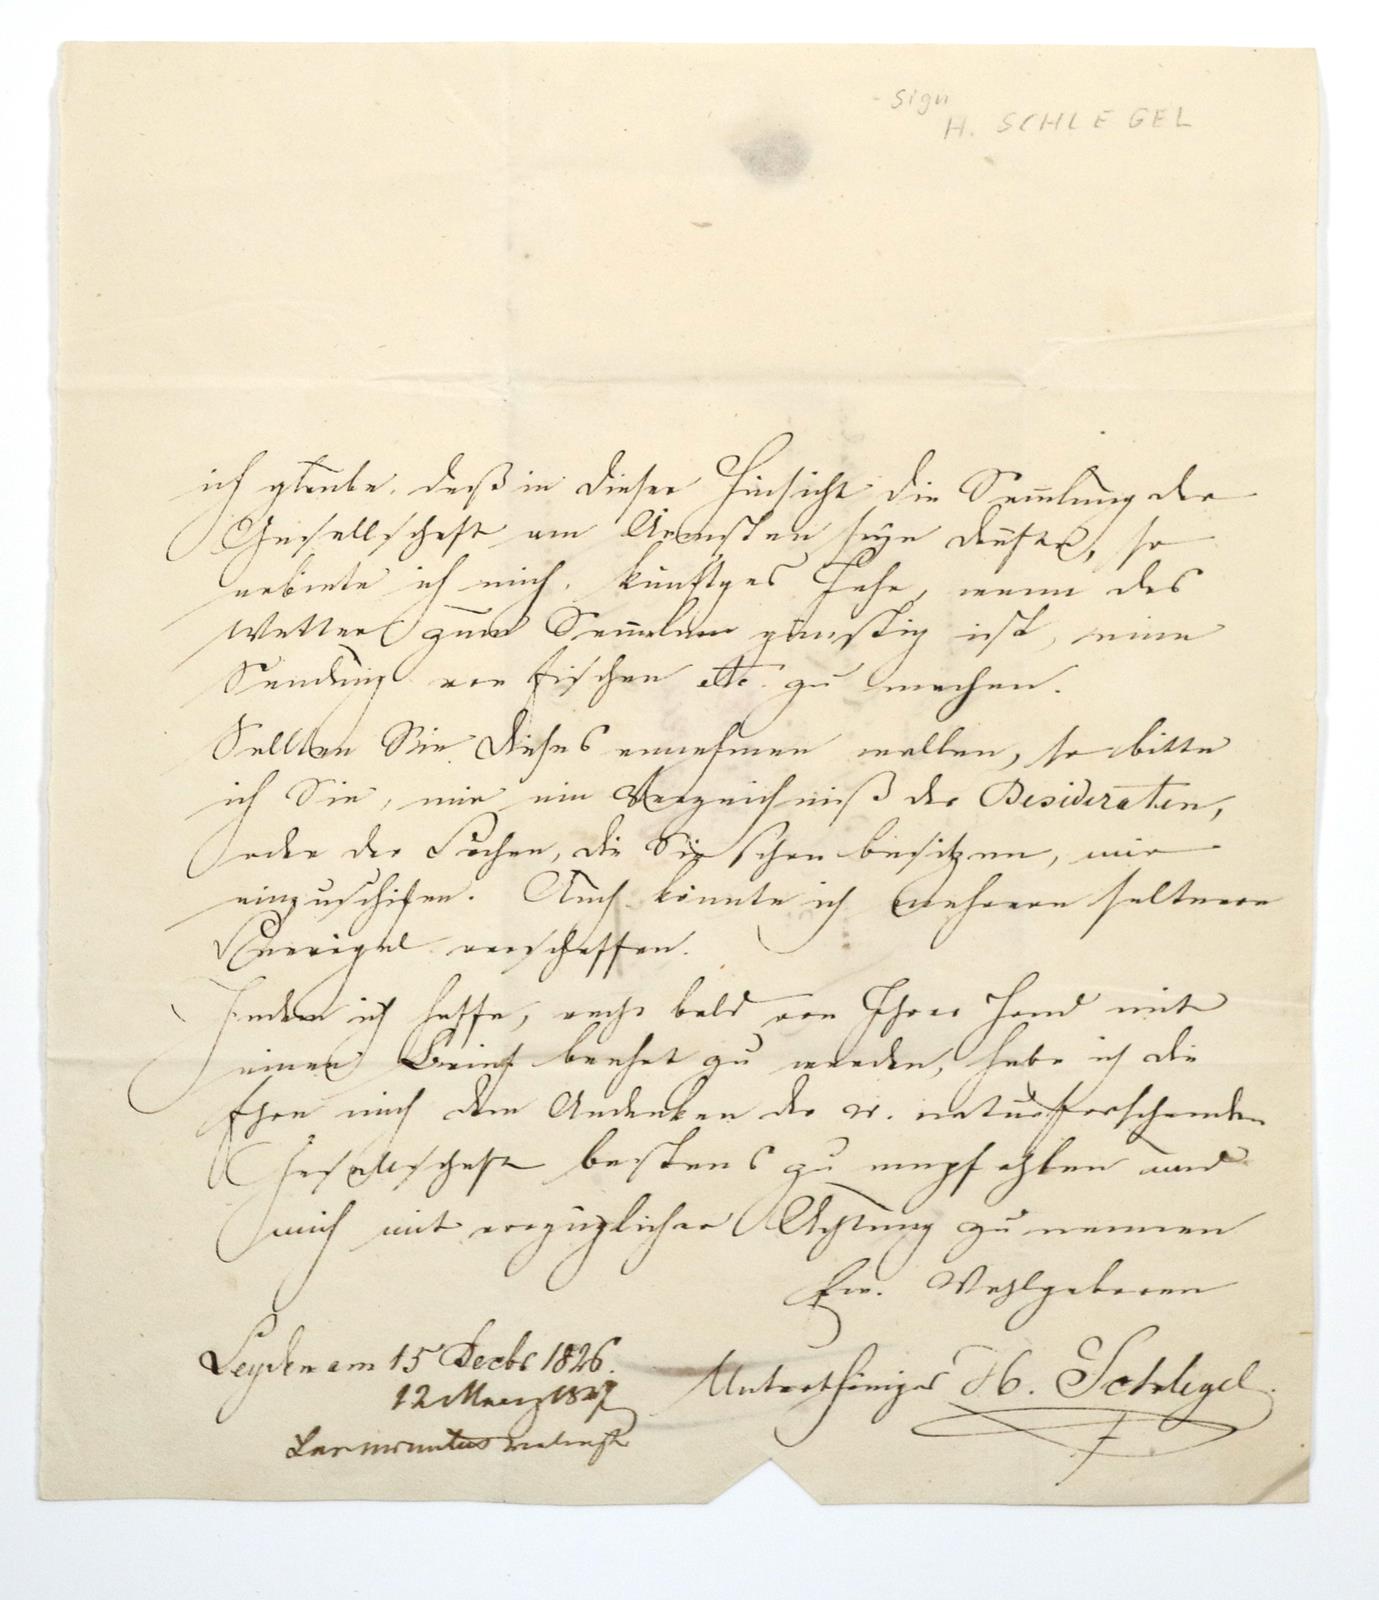 sign
H. SCHLEGEL
ich glaube, daß in dieser Hinsicht die Sammlung der
Gesellschaft am Ärmsten seyn dürfte, so
erbiete ich mich, künftges Jahr, wenn das
Wetter zum Sammeln günstig ist, eine
Sendung von Fischen etc. zu machen.
Sollten Sie dieses annehmen wollen, so bitte
ich Sie, mir ein Verzeichniß der Desideraten,
oder der Sachen, die Sie schon besitzen, mir
einzuschiken. Auch könnte ich mehrere seltnere
verschaffen.
Indem ich hoffe, recht bald von Ihrer Hand mit
einem Brief beehrt zu werden, habe ich die
Ehre mich dem Andenken der v. naturforschenden
Gesellschaft bestens zu empfehlen und
mich mit vorzüglicher Achtung zu nennen
Ew. Wohlgeboren
Leyden am 15 Decbr 1826.
Unterthäniger H. Schlegel.
12 Maerz 1827